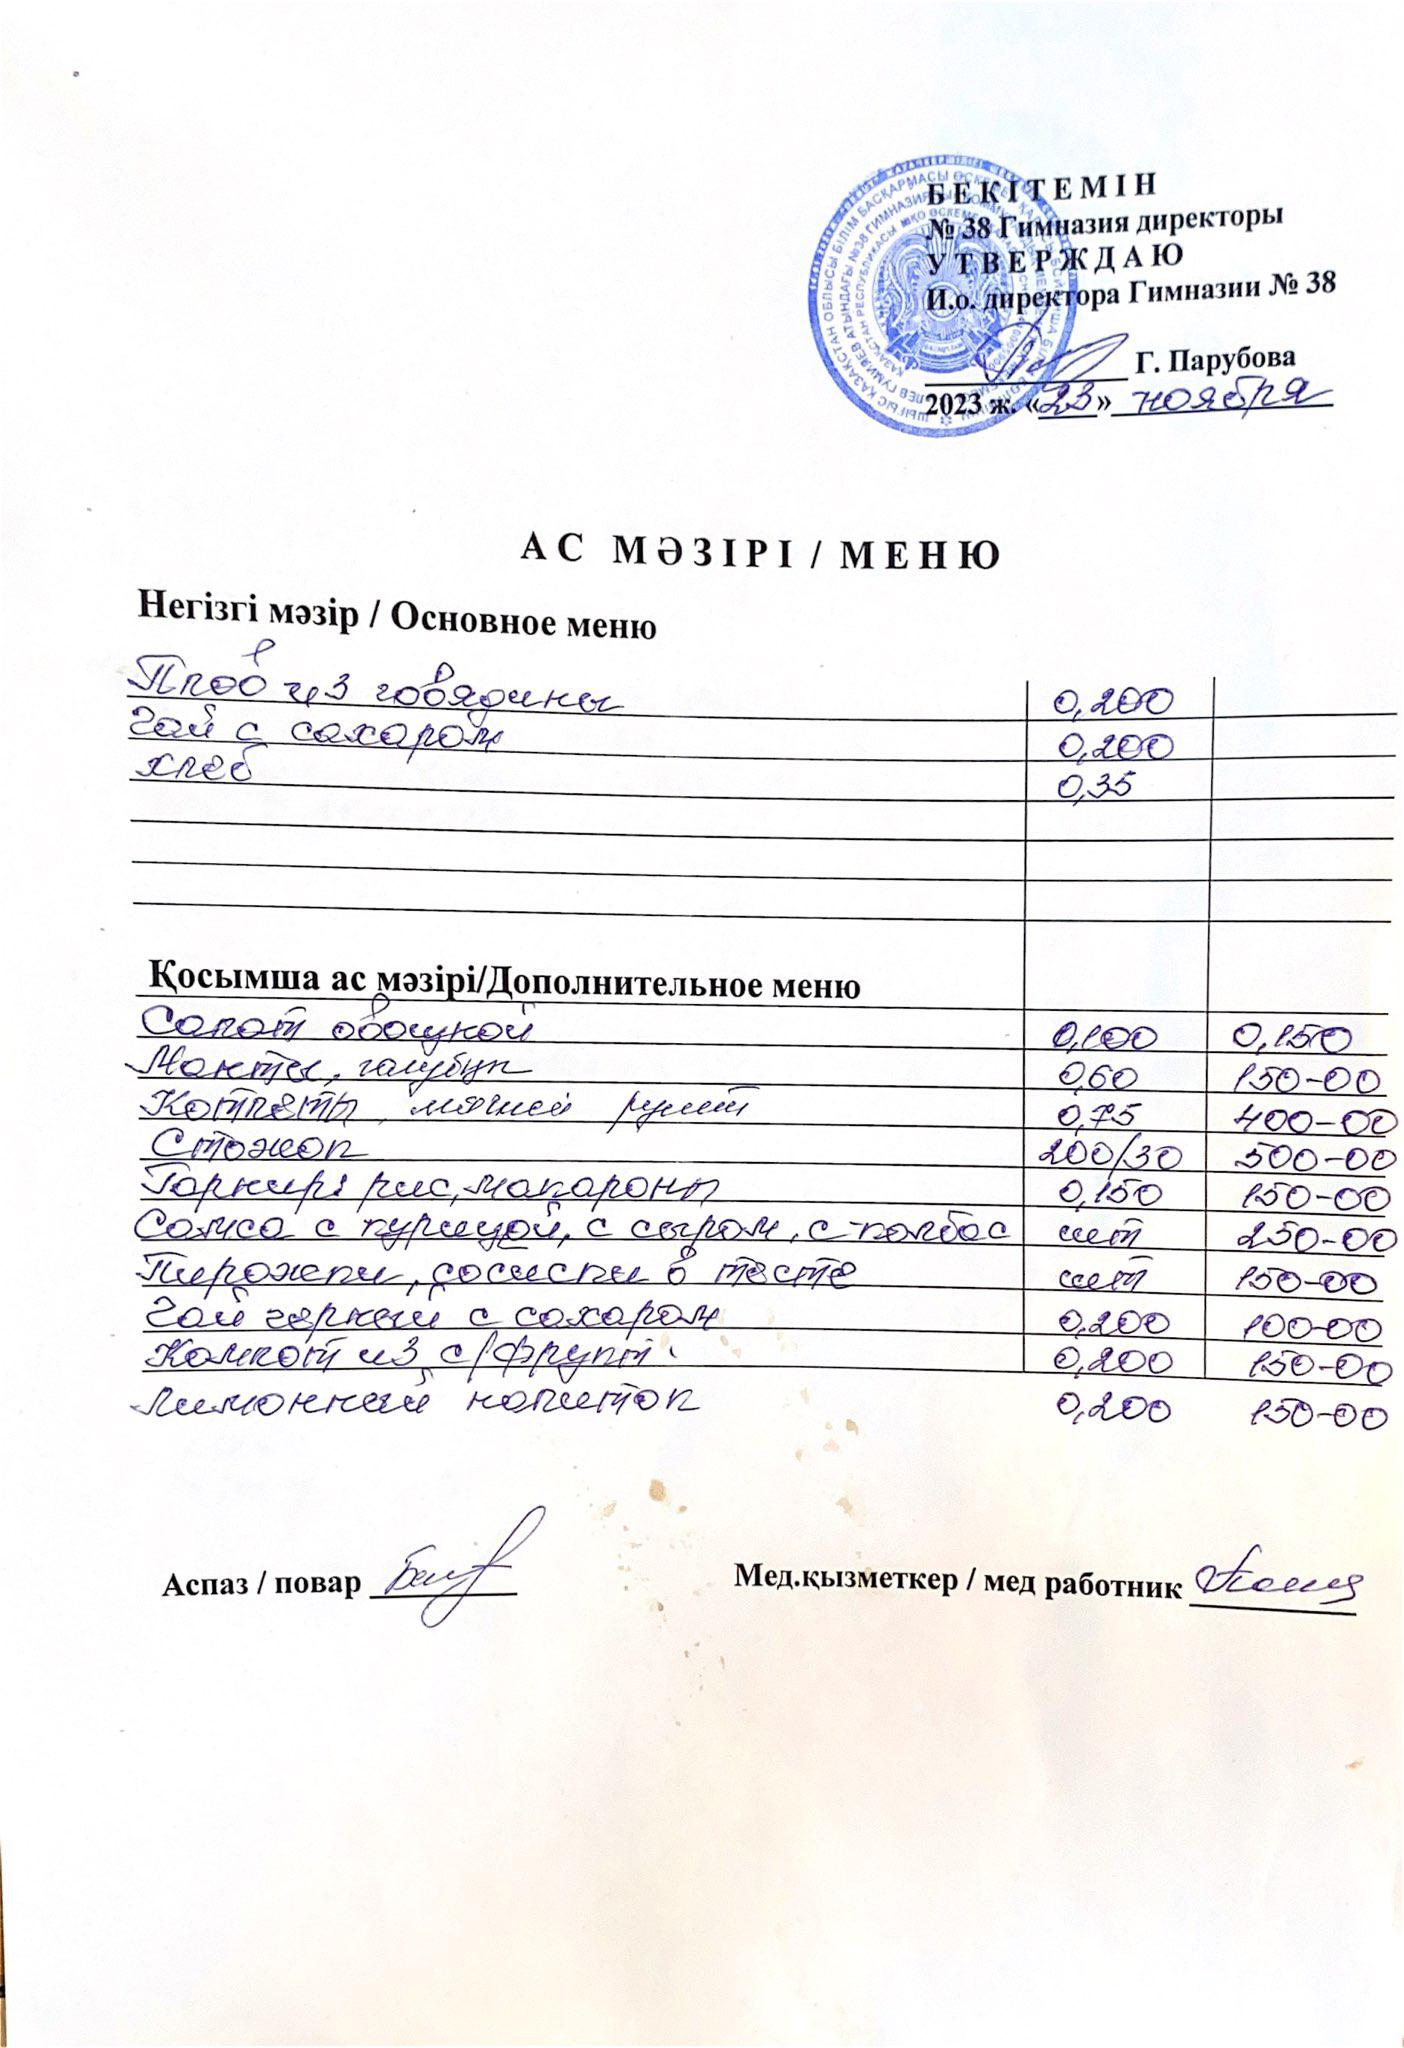 БЕКІТЕМІН
№ 38 Гимназия директоры
УТВЕРЖДАЮ
И.о. директора Гимназии № 38
Г. Парубова
2023 ж. «23» ноября
АС МӘЗІРІ / МЕНЮ
Негізгі мәзір / Основное меню
Плов из говядины 0,200
Чай с сахаром 0,200
хлеб 0,35
Қосымша ас мәзірі/Дополнительное меню
Салат овощной 0,100 0,150
Манты, голубцы 0,60 150-00
Котлеты, мясной рулет 0,75 400-00
200/30 500-00
Гарнир: рис, макароны 0,150 150-00
Самса с курицей, с сыром, с колбас шт 250-00
Пирожки, сосиски в тесте шт 150-00
Чай черный с сахаром 0,200 100-00
Компот из с/фрукт 0,200 150-00
Лимонный напиток 0,200 150-00
Аспаз / повар
Мед.қызметкер / мед работник